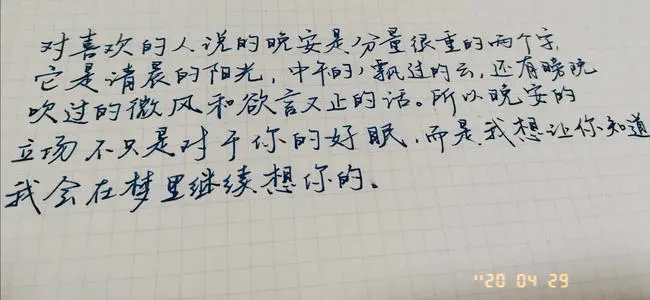 对喜欢的人说的晚安是分量很重的两个字,
它是清晨的阳光,中午的飘过的云,还有傍晚
吹过的微风和欲言又止的话。所以晚安的
立场不只是对于你的好眠,而是我想让你知道
我会在梦里继续想你的。
''20 04 29